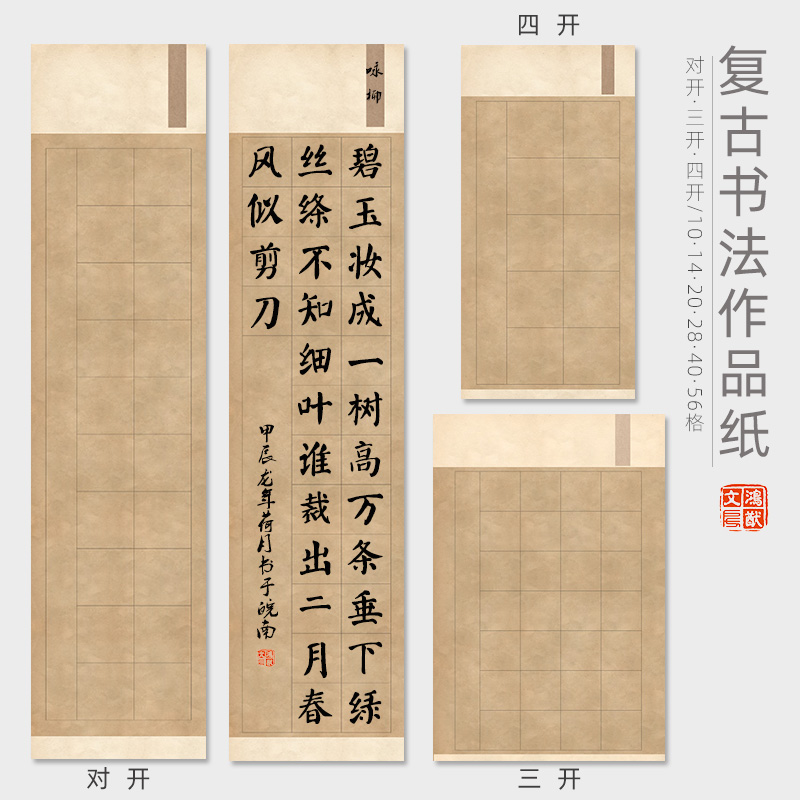 四开
复古书法作品纸
对开·三开·四开/10·14·20·28·40·56格
鸿猷
文
咏柳
碧玉妆成一树高万条垂下绿
丝绦不知细叶谁裁出二月春
风似剪刀
甲辰龙年荷月书于皖南
对开
三开